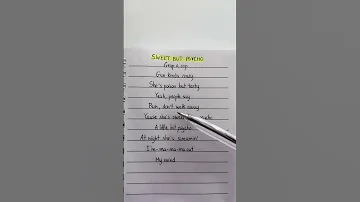 SWEET BUT PSYCHO
Grap a cop
Gon kinda crazy
She's poison but tasty
Yeah, people say
Run, don't walk away
'Cause she's sweet but psycho
A little bit psycho
At night she's screamin'
I'm-ma-ma-ma out
My mind